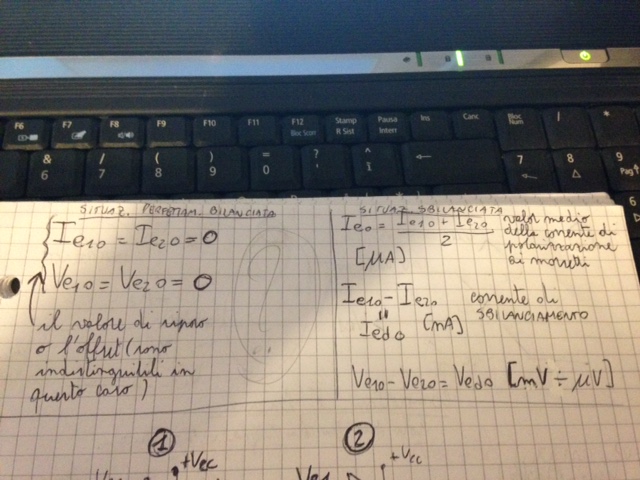 F6
F7
F8
F9
F10
F11
F12
Bloc Scorr
Stamp
R Sist
Pausa
Interr
Ins
Canc
Bloc
Num
/
*
&
6
/
7
(
8
)
9
=
0
?
'
^
ì
7
8
9
Pag
6
SITUAZ. PERFETTAM. BILANCIATA
Ie10 = Ie20 = 0
Ve10 = Ve20 = 0
il valore di riposo
o l'offset (sono
indistinguibili in
questo caso)
SITUAZ SBILANCIATA
Ie0 = Ie10 + Ie20 / 2
valor medio
della corrente di
polarizzazione
ai morsetti
[μA]
Ie10 - Ie20
=
Ied0 [nA]
corrente di
SBILANCIAMENTO
Ve10 - Ve20 = Ved0 [mV ÷ μV]
1
+Vcc
2
+Vcc
Ve1